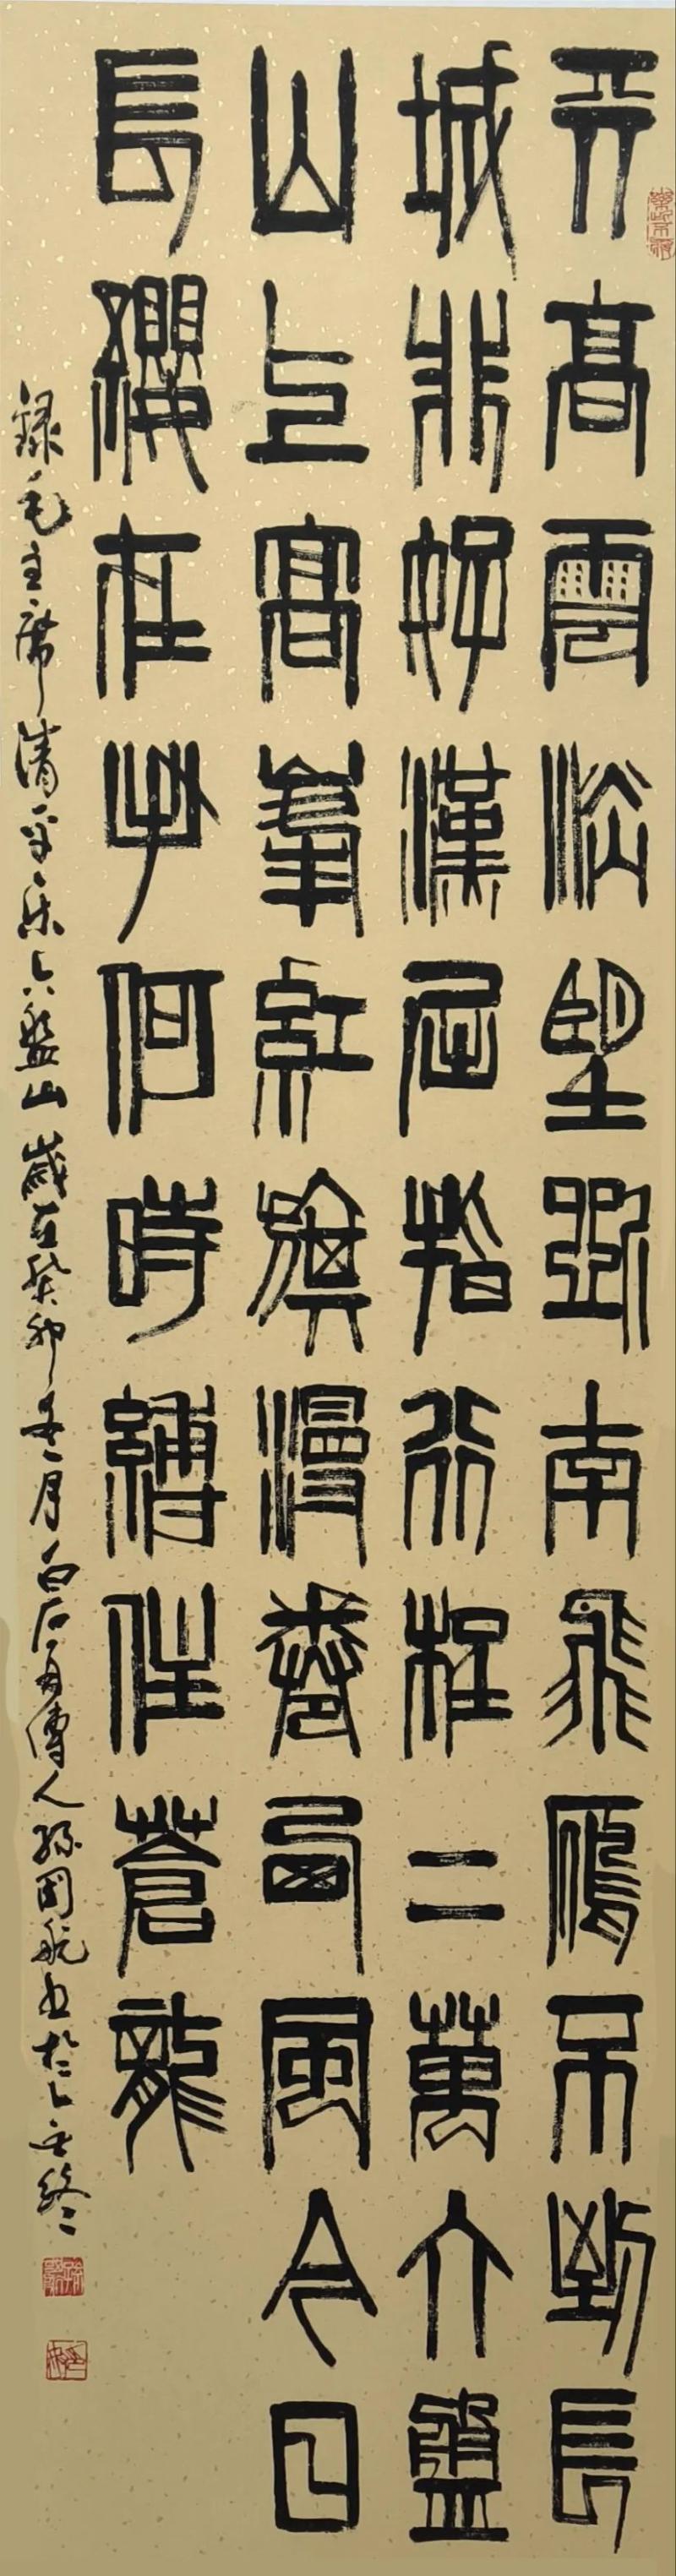 天高雲淡望斷南飛鴈不到長
城非好漢屈指行程二萬六盤
山上高峯紅旗漫卷西風今日
長纓在手何時縛住蒼龍
録毛主席清平乐六盤山 歲在癸卯冬月白石再傳人孫国航书於无終